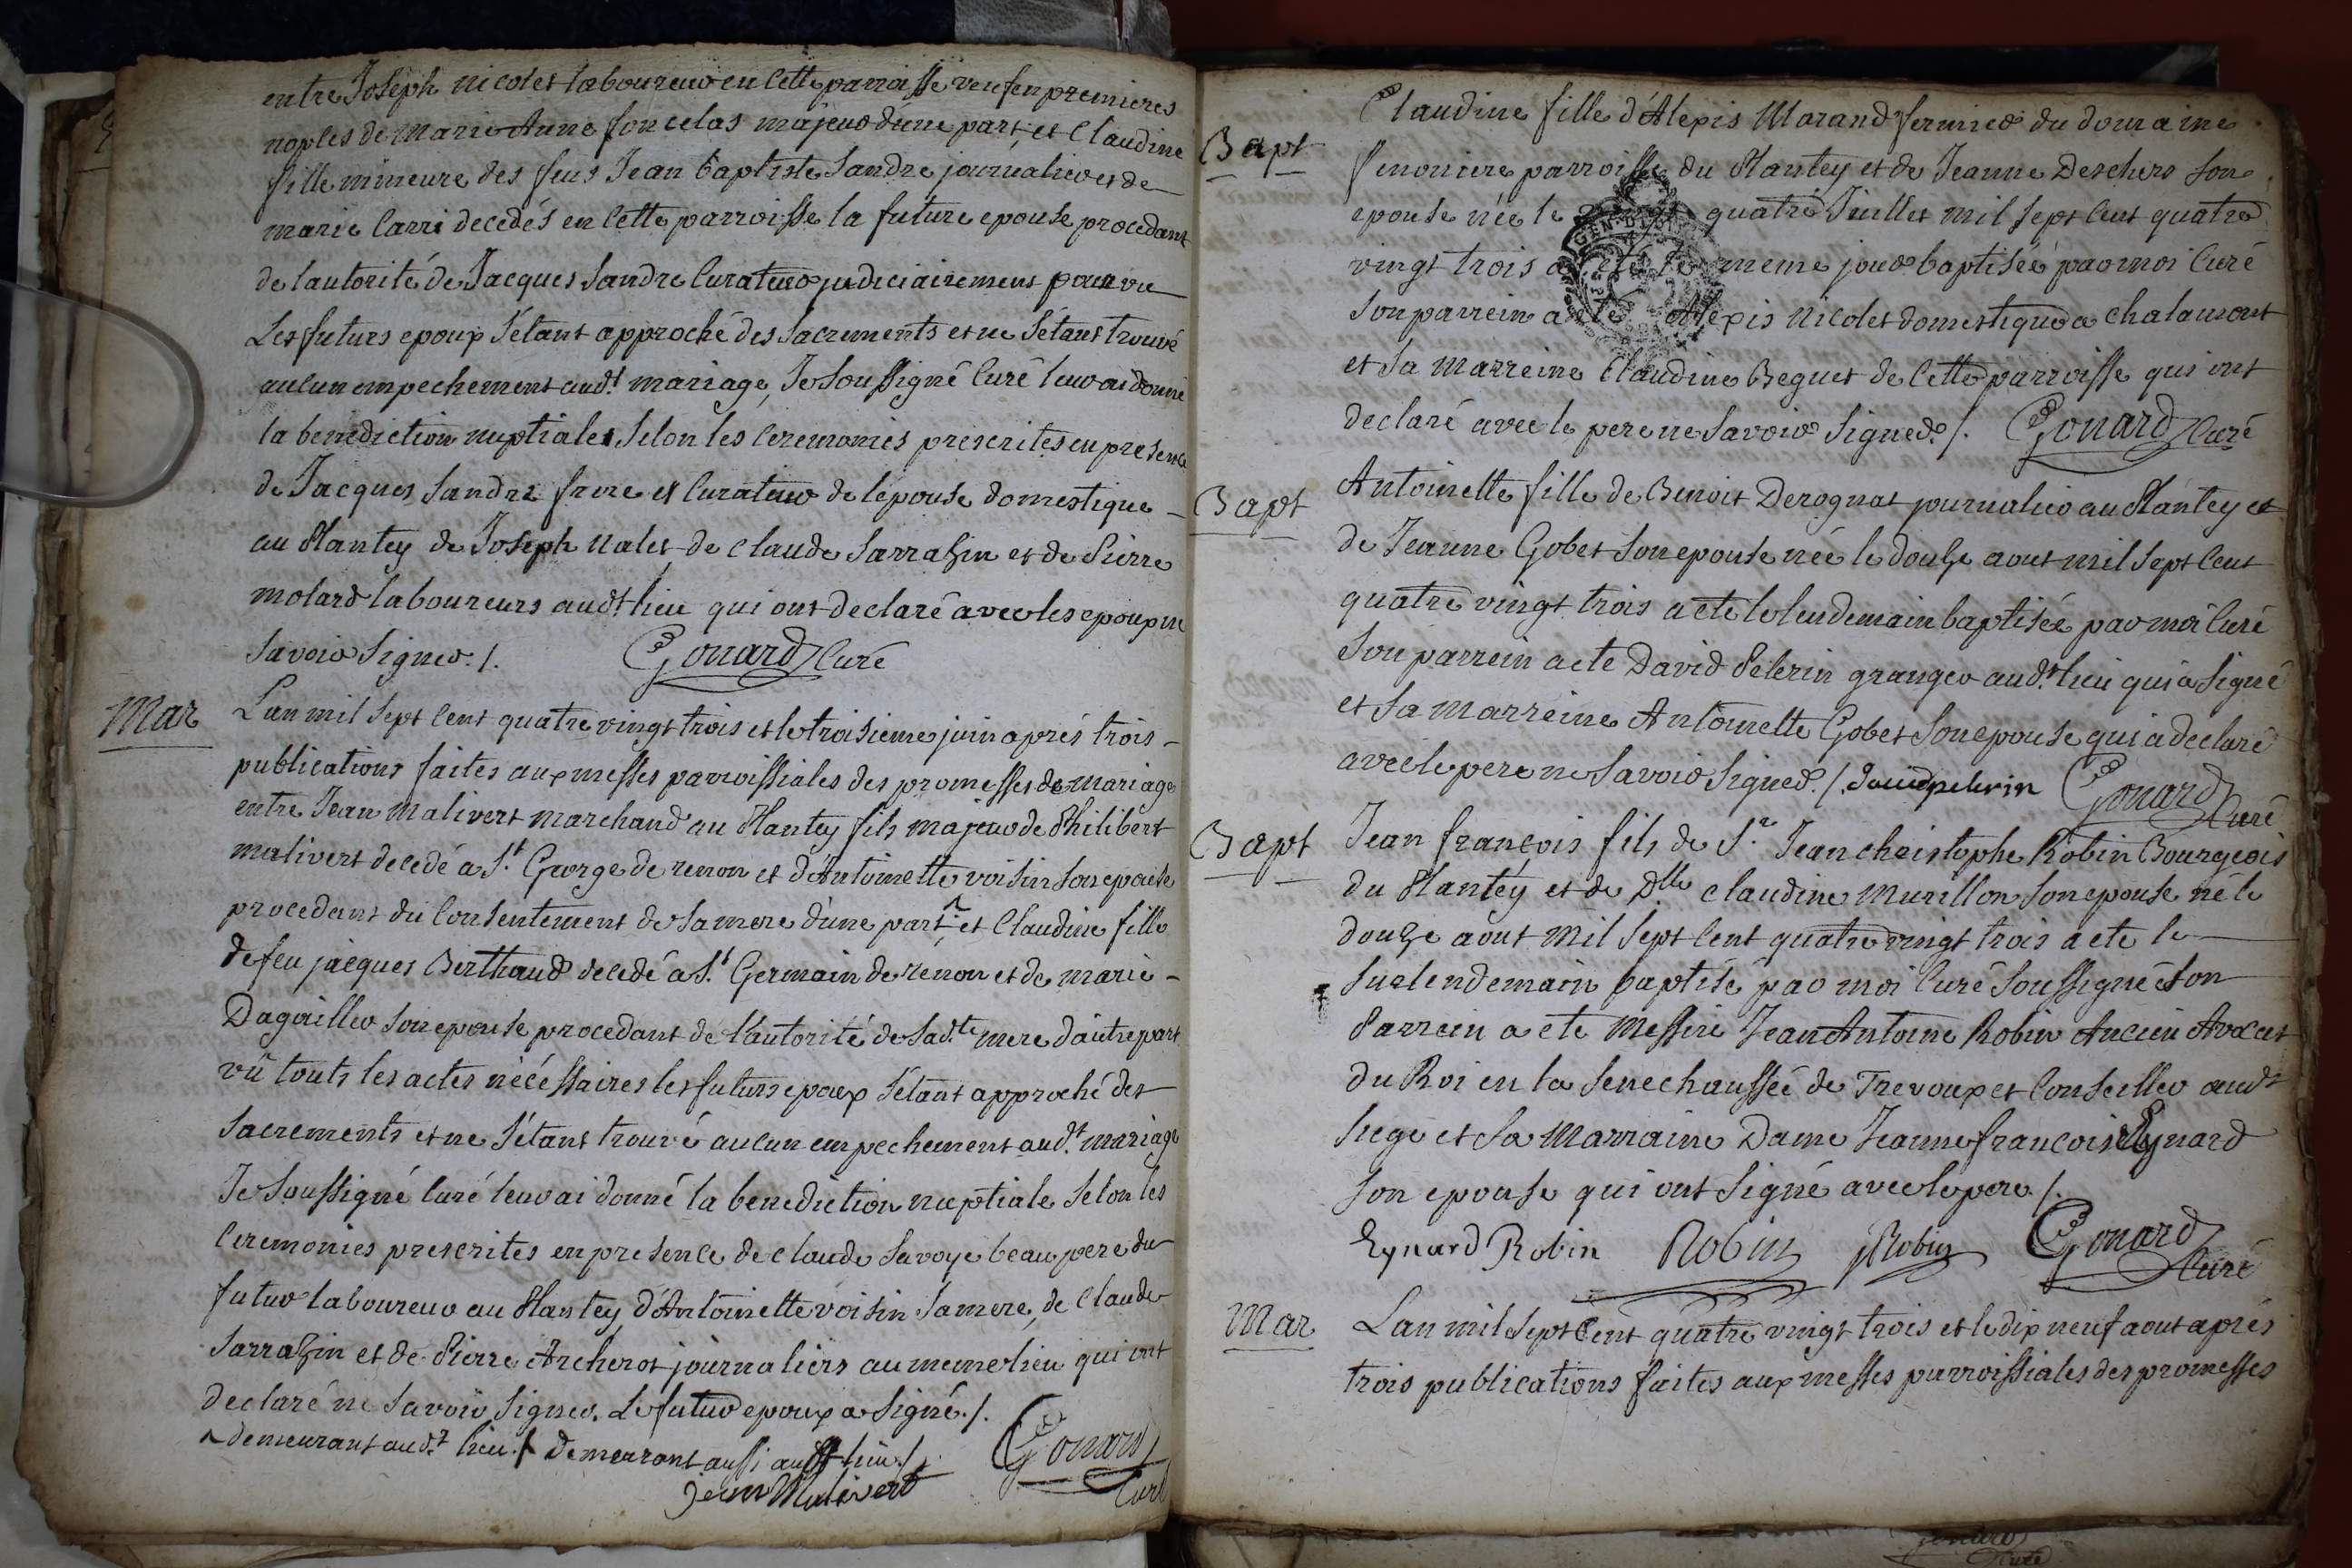 entre Joseph nicolet laboureur en cette parroisse veuf en premieres
nopces de Marie Anne foncelas majeur d'une part, et Claudine
fille mineure des feus Jean baptiste Sandre journalier et de
marie Carri decedés en cette parroisse la future epouse procedant
de l'autorité de Jacques Sandre Curateur judiciairement pourvu
Les futurs epoux s'étant approché des Sacrements et ne s'étant trouvé
aucun empechement audt. mariage, Je Soussigné Curé leur ai donné
la benediction nuptiale selon les Ceremonies prescrites en presence
de Jacques Sandre frere et Curateur de l'epouse domestique
au Plantey de Joseph nalet de Claude Sarrazin et de Pierre
molard laboureurs audt lieu qui ont declaré avec les epoux ne
Savoir Signer ./. Gonard Curé
Mar
L'an mil Sept Cent quatre vingt trois et le troisieme juin aprés trois
publications faites aux messes parroissiales des promesses de mariage
entre Jean malivert marchand au Plantey fils majeur de Philibert
malivert decedé a St. George de renon et d'Antoinette voisin son epouse
procedant du Consentement de sa mere d'une part ^ et Claudine fille
de feu jacques Berthaud decedé a St. Germain de renon et de marie
Dagailler son epouse procedant de l'autorité de Sadte mere d'autre part
vû touts les actes nécéssaires les futurs epoux s'étant approché des
Sacrements et ne s'étant trouvé aucun empechement audt. mariage
Je Soussigné Curé leur ai donné la benediction nuptiale Selon les
Ceremonies prescrites en presence de Claude Savoye beaupere du
futur laboureur au Plantey, d'Antoinette voisin sa mere, de Claude
Sarrazin et de Pierre Archerot journaliers au meme lieu qui ont
declaré ne Savoir Signer. Le futur epoux a Signé ./.
^ demeurant audt lieu ./. demeurant aussi audt lieu ./. Gonard
jean Malivert Curé
Bapt
Claudine fille d'Alexis Marand fermier du domaine
parroisse du Plantey et de Jeanne Deschers son
epouse née le quatre Juillet mil Sept Cent quatre
vingt trois a été le meme jour baptisée par moi Curé
Son parrein a été Alexis Nicolet domestique a Chalamont
et Sa Marreine Claudine Beguet de Cette parroisse qui ont
declaré avec le pere ne Savoir Signer ./. Gonard Curé
Bapt
Antoinette fille de Benoit Derognat journalier au Plantey et
de Jeanne Gobet Son epouse née le douze aout mil Sept Cent
quatre vingt trois a eté le lendemain baptisée par moi Curé
Son parrein a eté David Pelerin granger audt. lieu qui a Signé
et Sa Marreine Antoinette Gobet Son epouse qui a declaré
avec le pere ne Savoir Signer ./. david pelerin Gonard
Curé
Bapt
Jean françois fils de Sr. Jean Christophe Robin Bourgeois
du Plantéy et de Dlle Claudine Murillon Son epouse né le
douze aout mil Sept Cent quatre vingt trois a eté le
Surlendemain baptisé par moi Curé Soussigné Son
Parrein a eté Messire Jean Antoine Robin Ancien Avocat
du Roi en la Senechaussée de Trevoux et Conseiller audt
Siege et Sa Marraine Dame Jeanne françoise Eynard
Son epouse qui ont Signé avec le pere ./.
Eynard Robin Robin Robin Gonard
Curé
Mar
L'an mil Sept Cent quatre vingt trois et le dix neuf aout aprés
trois publications faites aux messes parroissiales des promesses